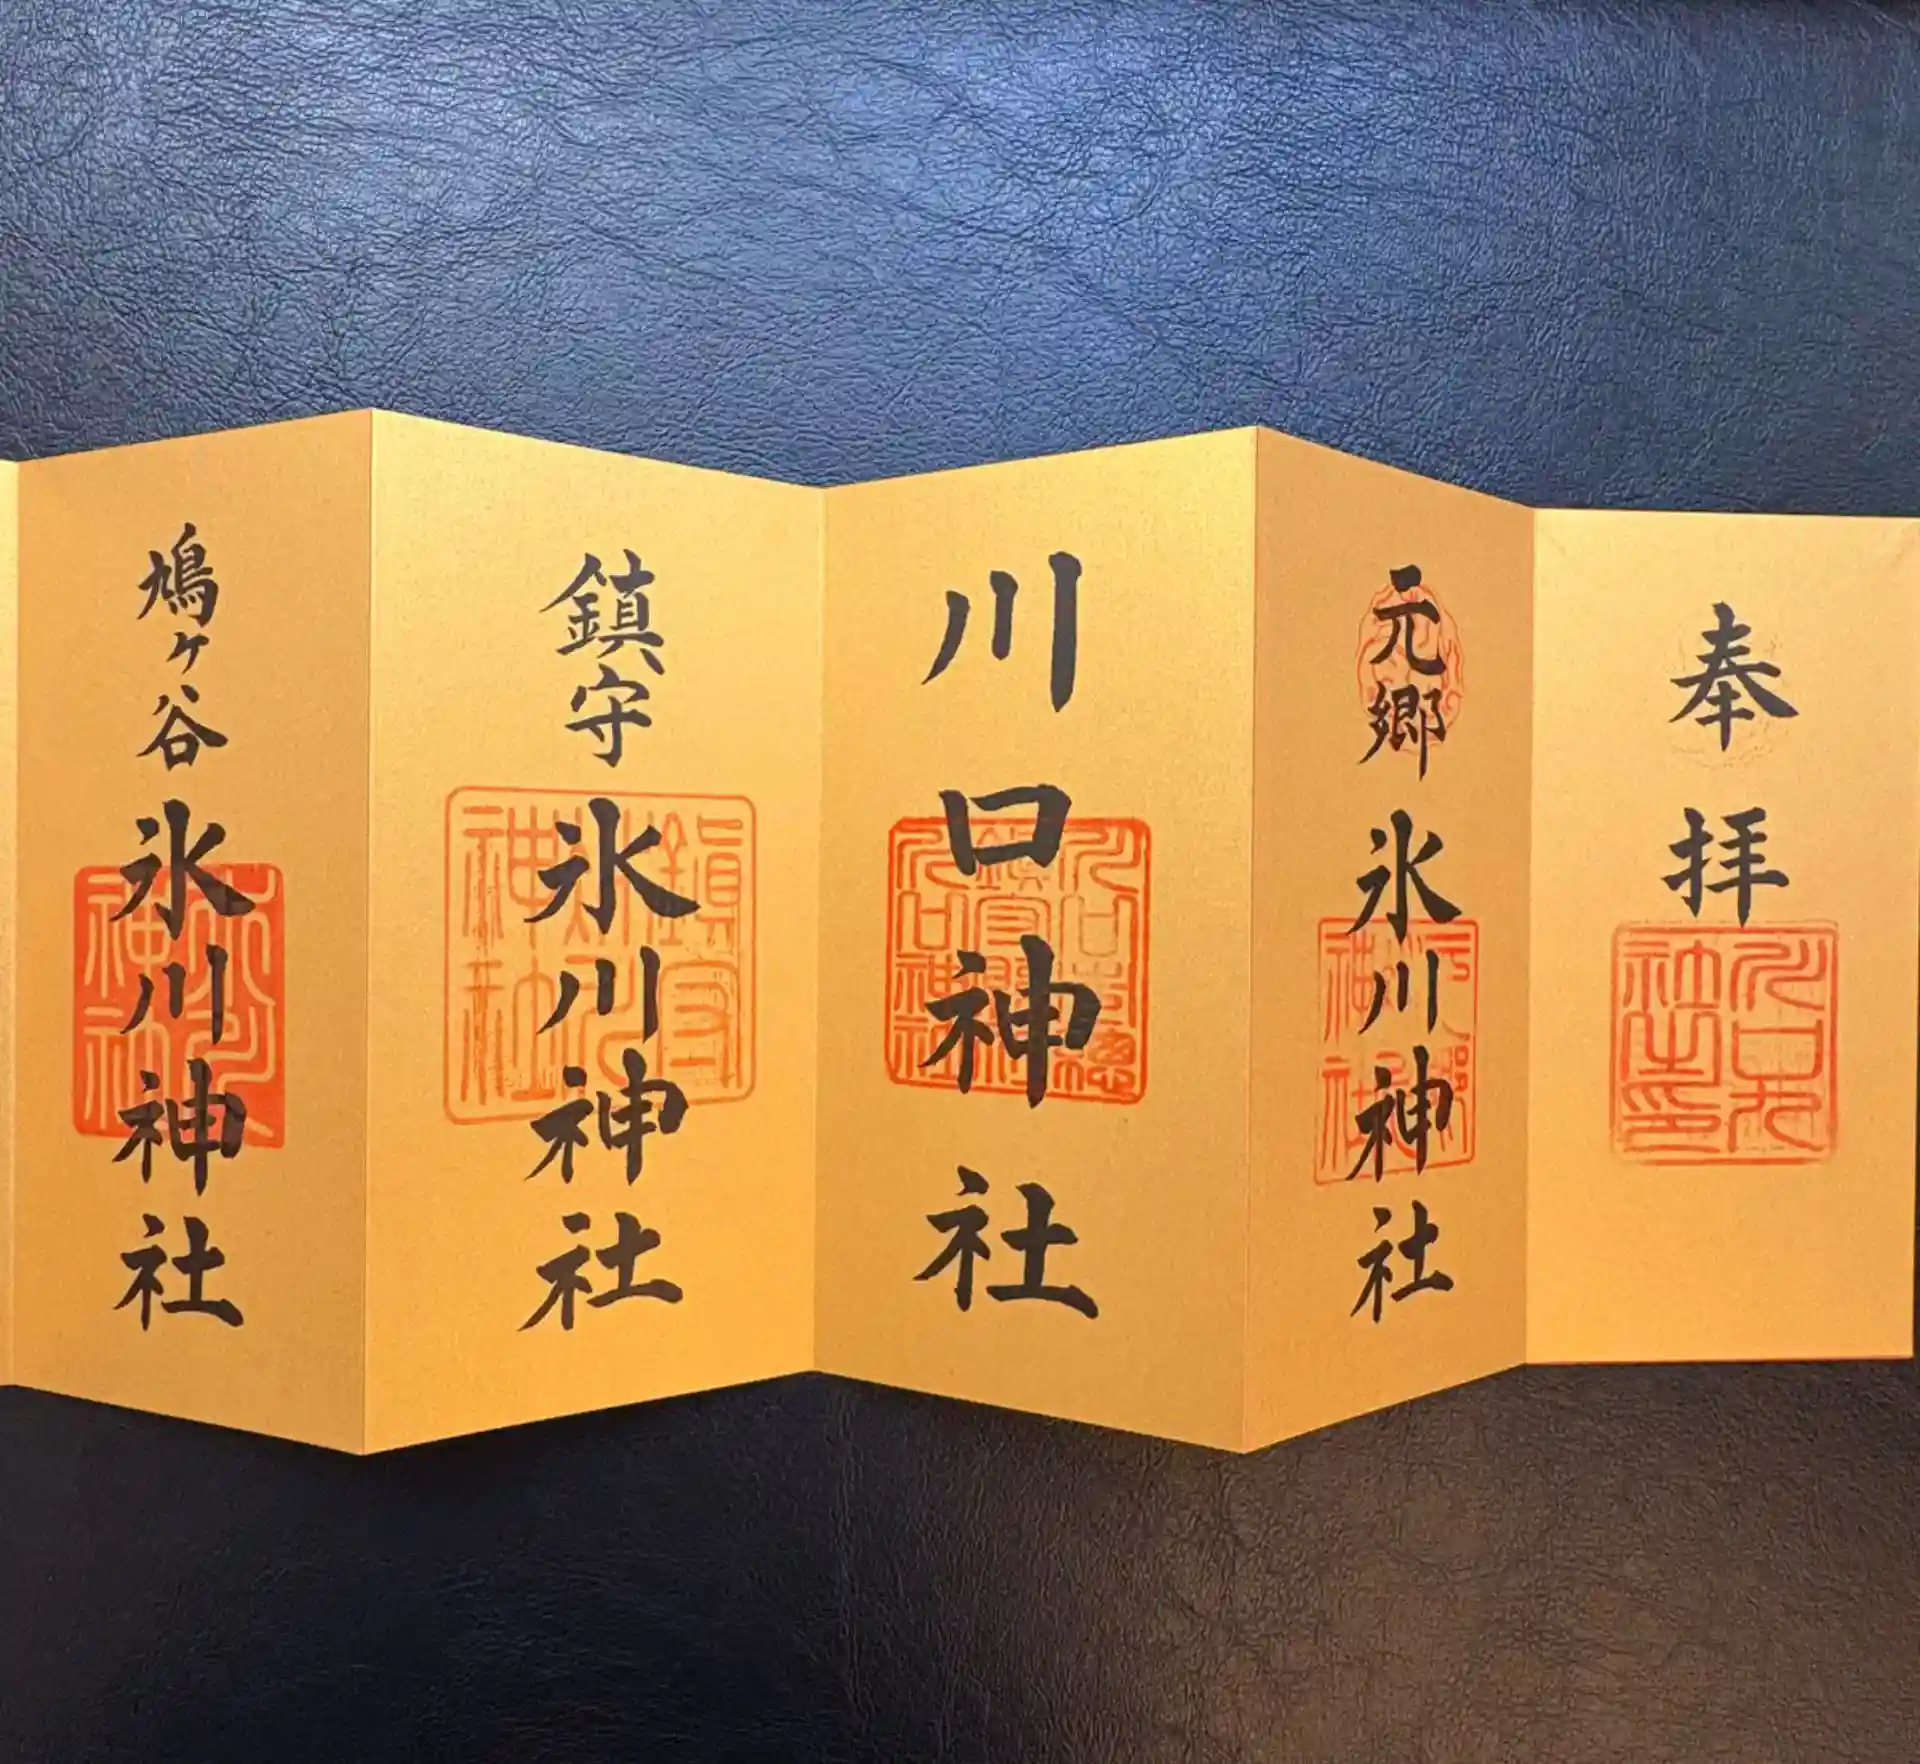 奉拝
元郷氷川神社
川口神社
鎮守氷川神社
鳩ヶ谷氷川神社